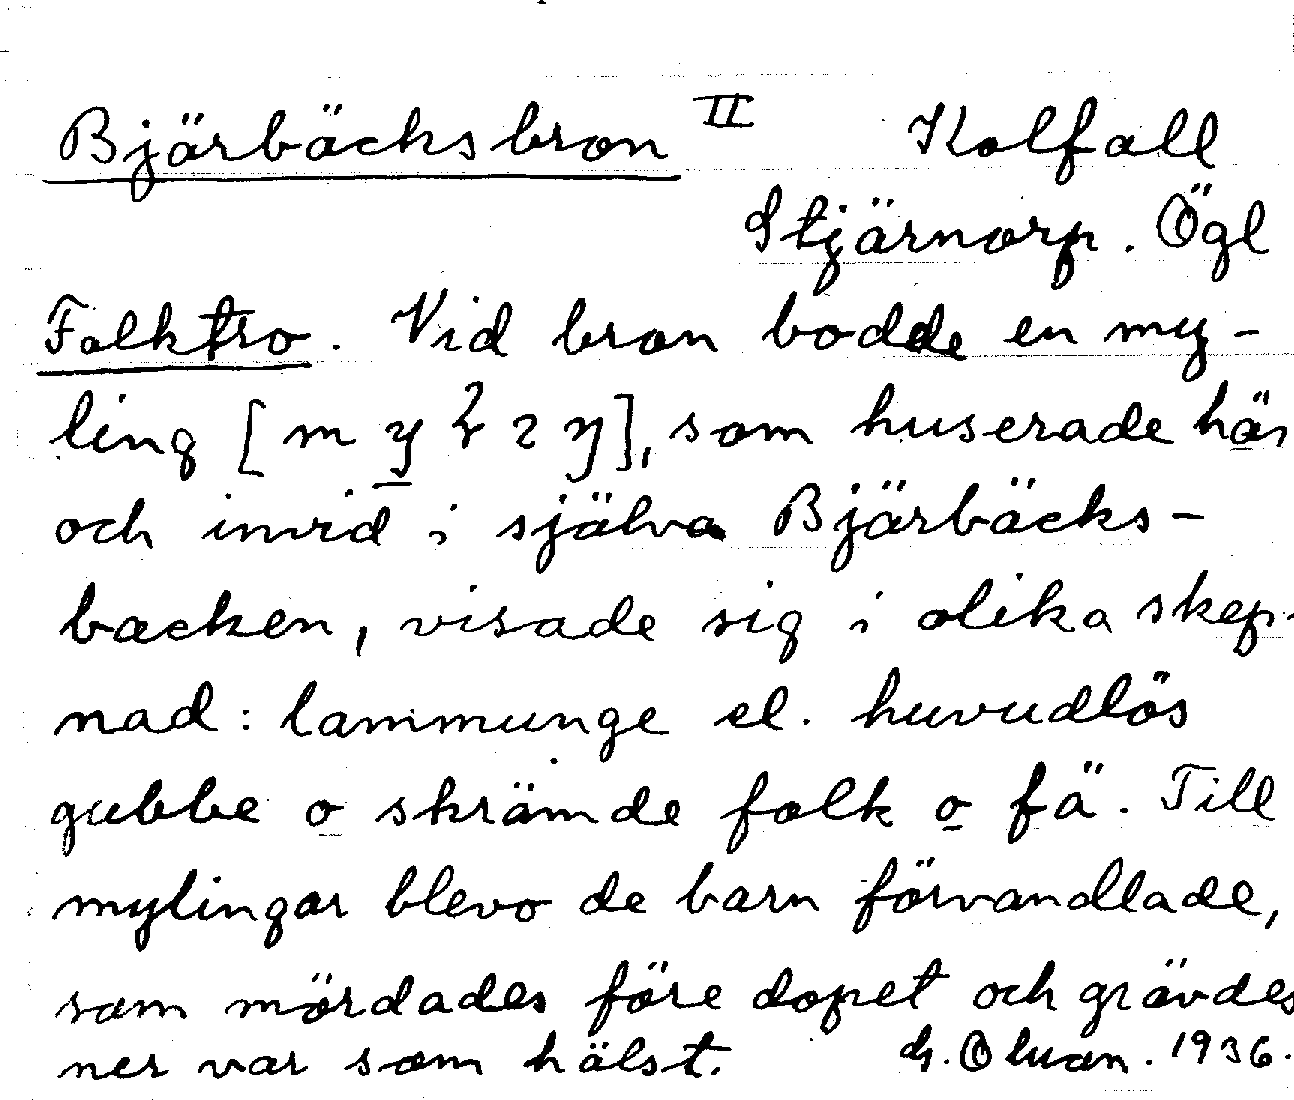 Bjärbäcksbron II Kolfall
Stjärnorp. Ögl
Folktro. Vid bron bodde en my-
ling [ ], som huserade här
och invid i själva Bjärbäcks-
backen, visade sig i olika skep-
nad: lammunge el. huvudlös
gubbe o skrämde folk o fä. Till
mylingar blevo de barn förvandlade,
som mördades före dopet och grävdes
ner var som hälst. 1936.